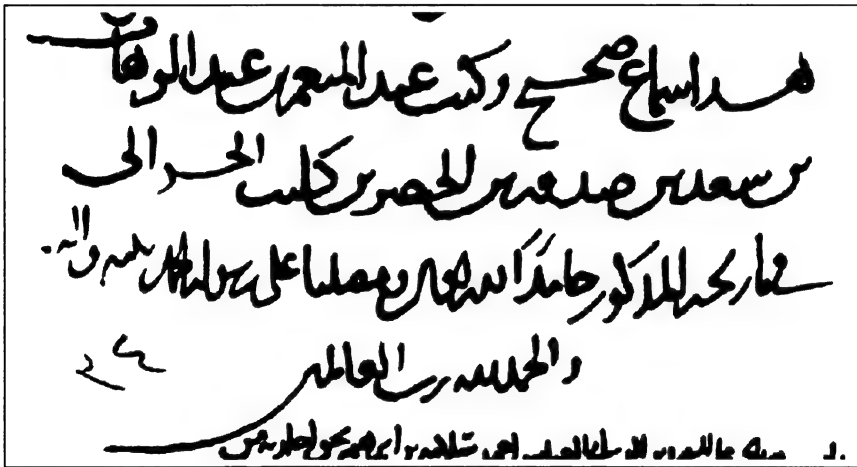 هذا سماع صحيح وكتب عبد المنعم بن عبد الوهاب
بن سعد بن صدقة بن الخضر بن كليب الحراني
في تاريخه المذكور حامدا لله تعالى ومصليا على رسوله محمد نبيه وآله
والحمد لله رب العالمين